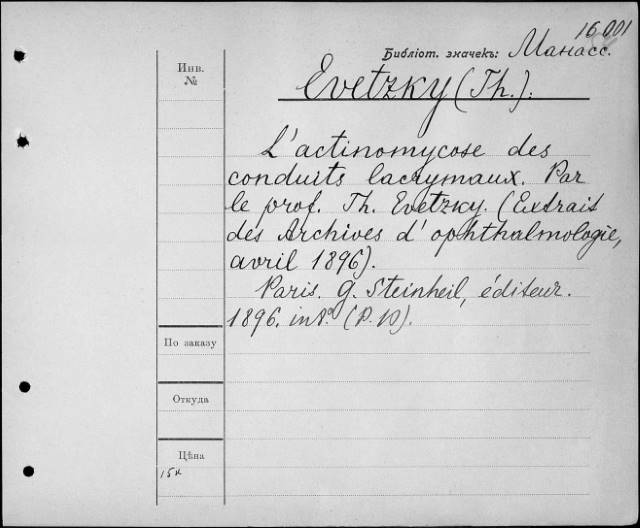 16001
Библіот. значекъ: Манасс.
Инв.
№
Evetzky (Th.):
L'actinomycose des
conduits lacrymaux. Par
le prof. Th. Evetzky. (Extrait
des Archives d'ophthalmologie,
avril 1896).
Paris. G. Steinheil, éditeur.
1896. in 8º. (P. 10).
По заказу
Откуда
Цѣна
15к